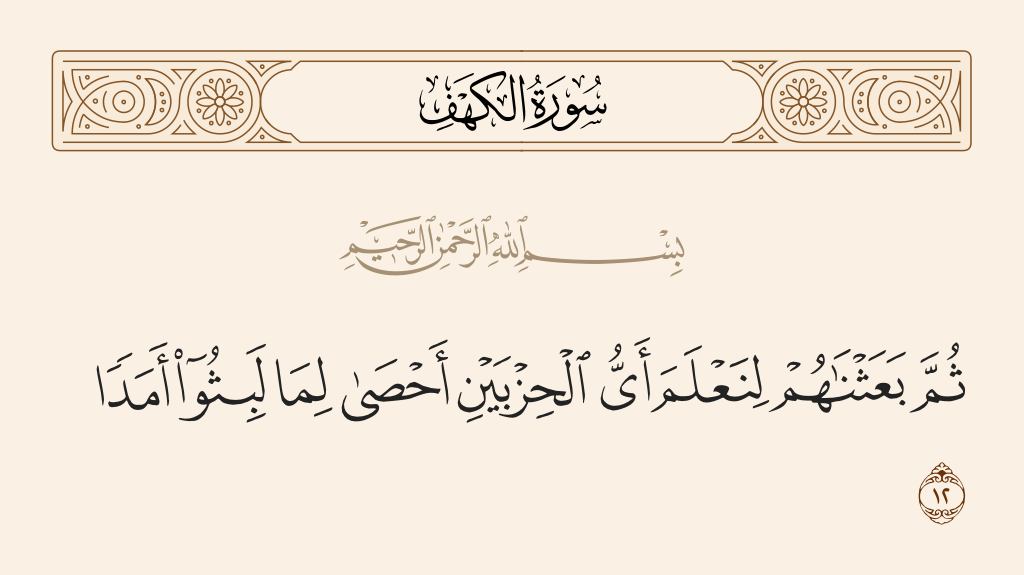 سُورَةُ الكَهۡفِ
بِسۡمِ ٱللَّهِ ٱلرَّحۡمَٰنِ ٱلرَّحِيمِ
ثُمَّ بَعَثۡنَٰهُمۡ لِنَعۡلَمَ أَيُّ ٱلۡحِزۡبَيۡنِ أَحۡصَىٰ لِمَا لَبِثُوٓاْ أَمَدٗا
١٢